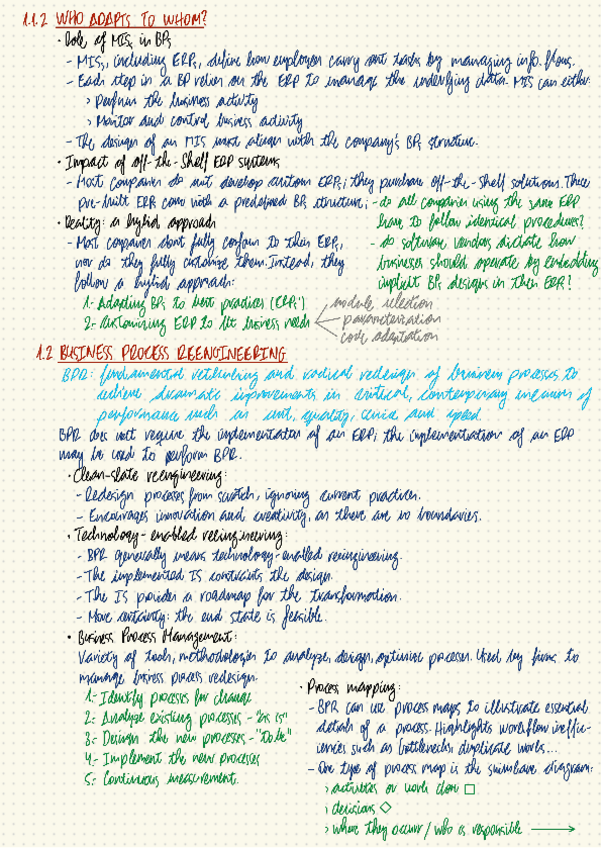 1.1.2 WHO ADAPTS TO WHOM?
• Role of MISs in BPs
- MISs, including ERPs, define how employees carry out tasks by managing info. flows.
- Each step in a BP relies on the ERP to manage the underlying data. MIS can either:
> Perform the business activity
> Monitor and control business activity
- The design of an MIS must aligan with the company's BPs structure.
• Impact of off-the-Shelf ERP systems
- Most companies do not develop custom ERPs; they purchase off-the-shelf solutions. These
pre-built ERPs come with a predefined BPs structure;
- do all companies using the same ERP
have to follow identical procedures?
- do software vendors dictate how
businesses should operate by embedding
implicit BPs designs in their ERP?
• Reality: a hybrid approach
- Most companies dont fully conform to their ERPs,
nor do they fully customize them. Instead, they
follow a hybrid approach:
1- Adapting BPs to best practices (ERPs')
2- Customizing ERP to fit business needs
module selection
parameterization
code adaptation
1.2 BUSINESS PROCESS REENGINEERING
BPR: fundamental rethinking and radical redesign of business processes to
achieve dramatic improvements in critical, contemporary measures of
performance such as cost, quality, service and speed.
BPR does not require the implementation of an ERP; the implementation of an ERP
may be used to perform BPR.
• Clean-slate reengineering:
- Redesign processes from scratch, ignoring current practices.
- Encourages innovation and creativity, as there are no boundaries.
• Technology-enabled reengineering:
- BPR generally means technology-enabled reengineering.
- The implemented IS constraints the design.
- The IS provides a roadmap for the transformation.
- More certainty: the end state is feasible.
• Business Process Management:
Variety of tools, methodologies to analyze, design, optimize processes. Used by firms to
manage business process redesign.
1- Identify processes for change
2- Analyze existing processes - "as is"
3- Design the new processes - "To be"
4- Implement the new processes
5- Continuous measurement.
• Process mapping:
- BPR can use process maps to illustrate essential
details of a process. Highlights workflow ineffic-
iencies such as bottlenecks, duplicate works...
- One type of process map is the swimlane diagram:
> activities or work done
> decisions
> where they occur / who is responsible